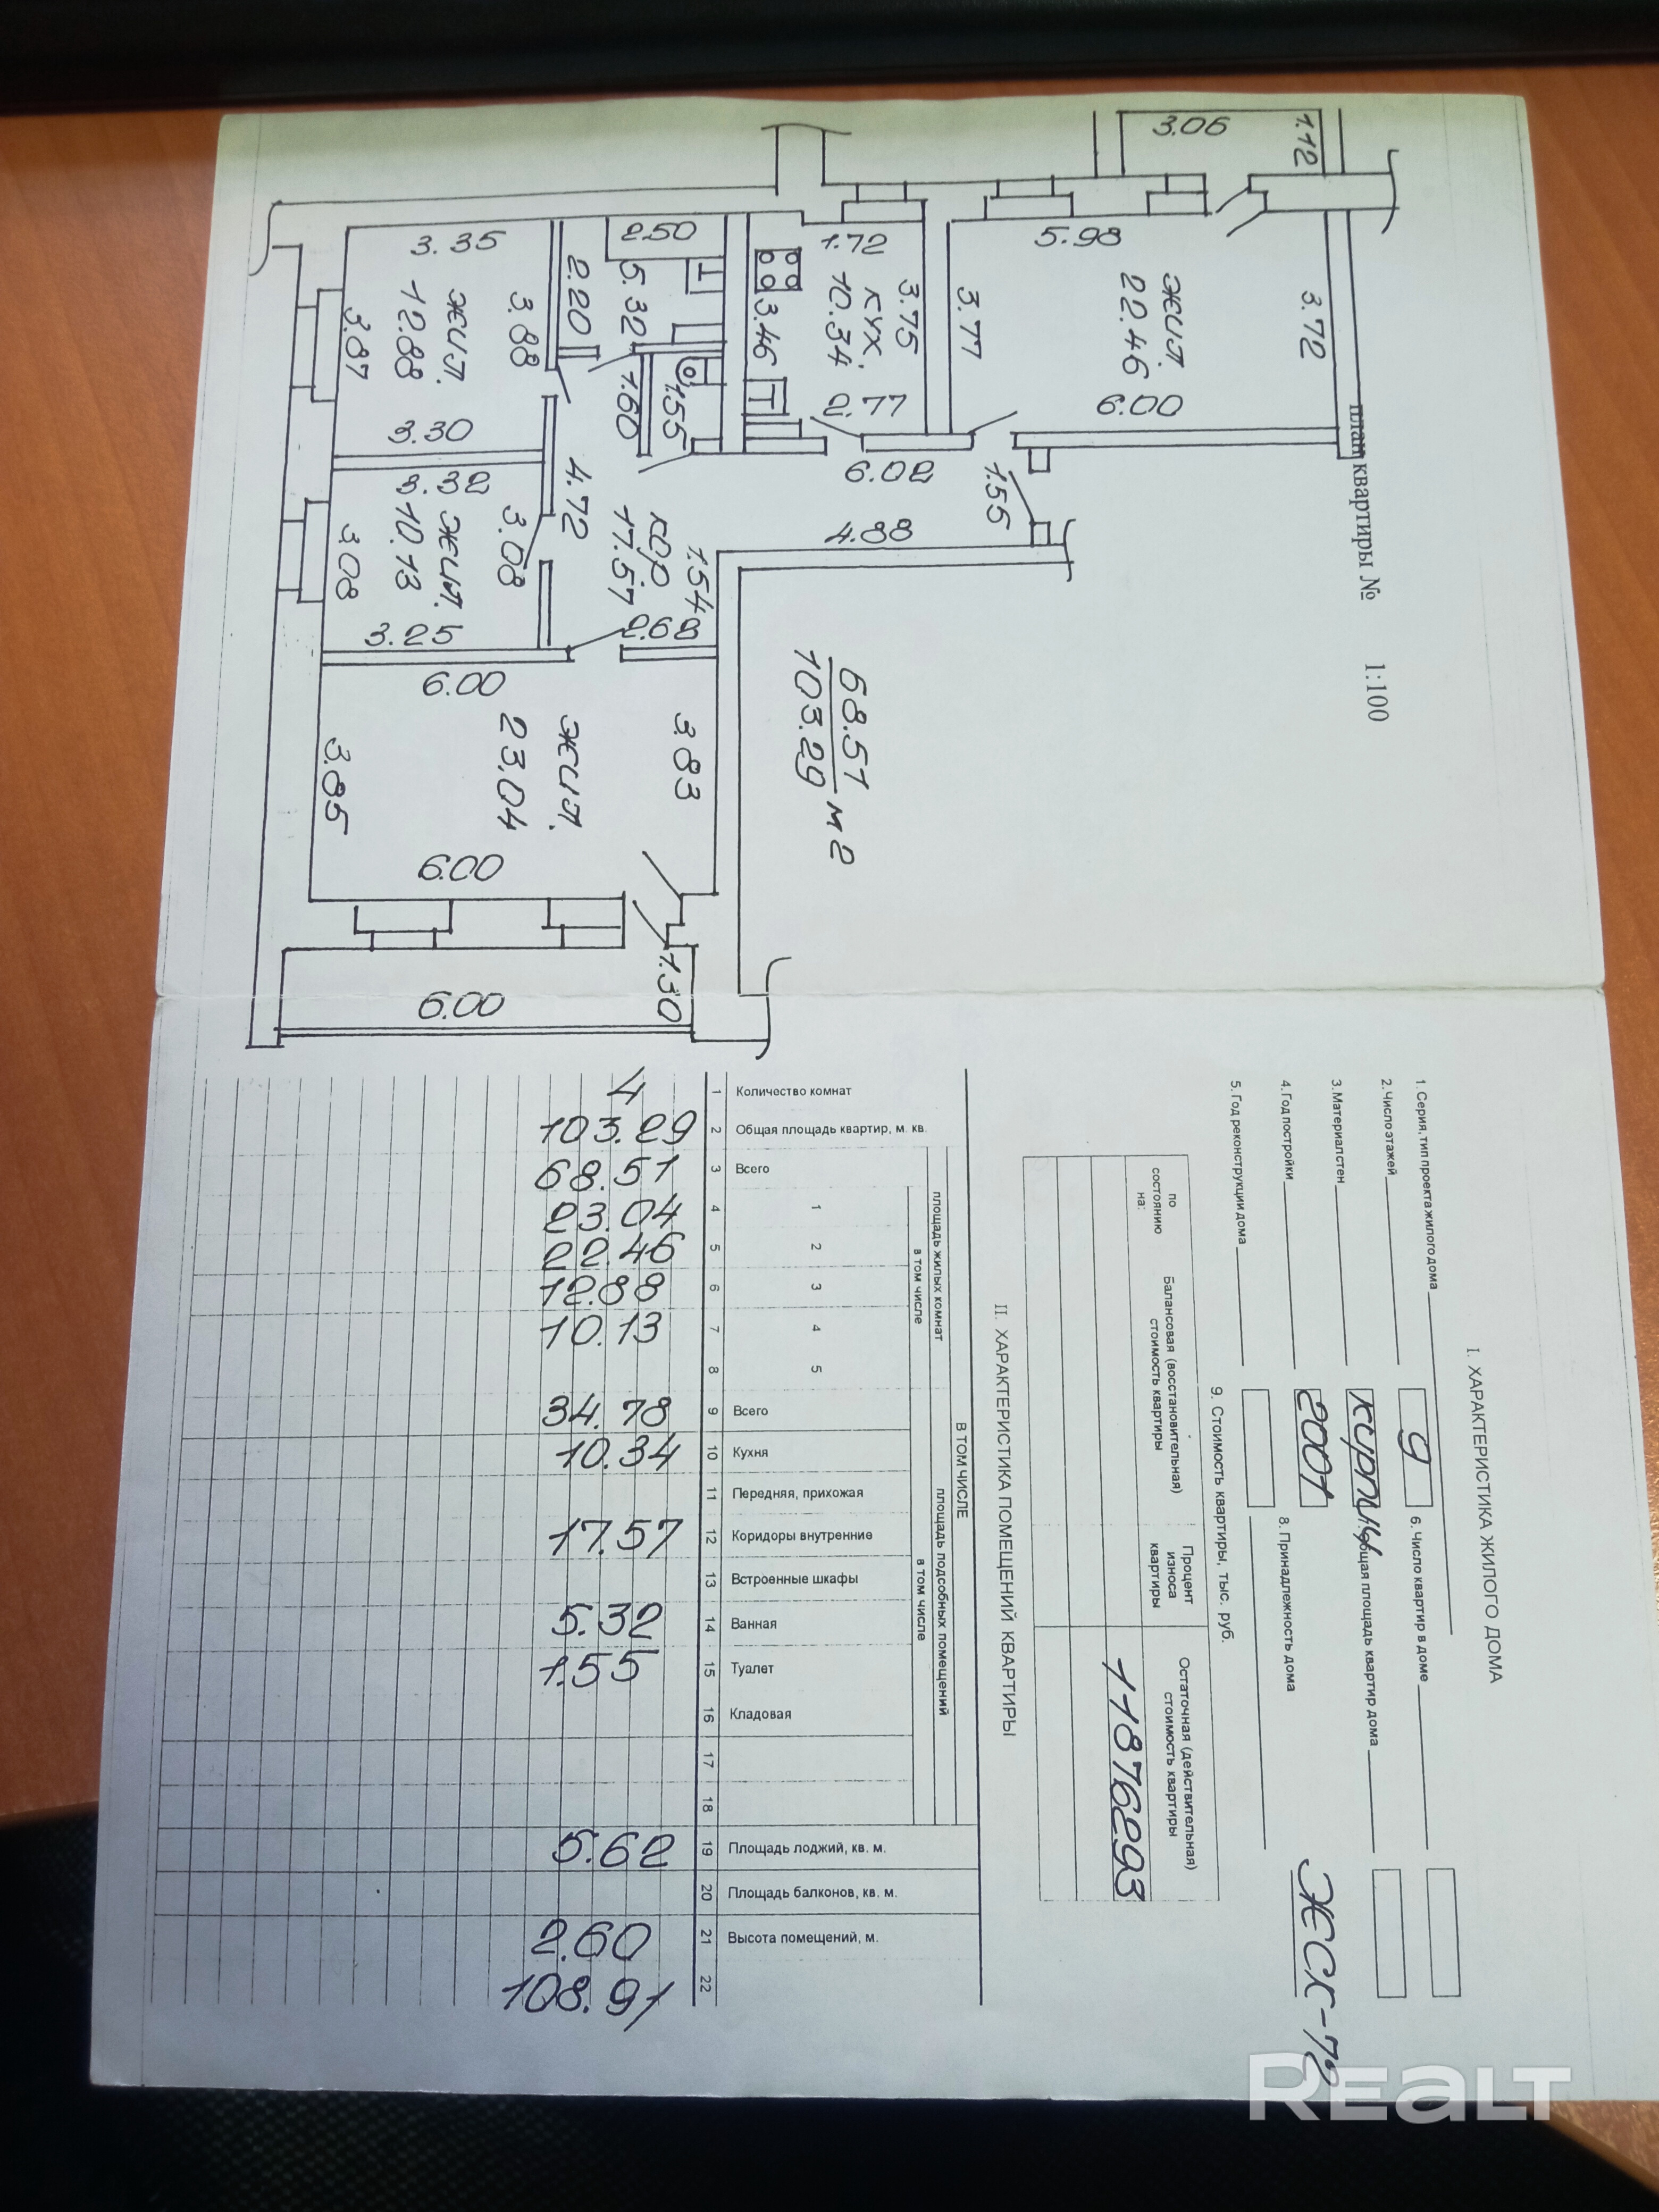 план квартиры № 1:100
3.06
1.12
5.98
3.72
жил.
22.46
6.00
3.77
1.72
3.75
кух.
10.34
3.46
2.77
2.50
5.32
2.20
1.60
1.55
3.35
3.88
жил.
12.88
3.87
3.30
3.32
жил.
10.13
3.08
3.08
3.25
4.72
кор
17.57
1.54
2.68
6.02
4.88
1.55
68.51
103.29 м2
6.00
3.83
жил.
23.04
3.85
6.00
1.30
6.00
I. ХАРАКТЕРИСТИКА ЖИЛОГО ДОМА
1. Серия, тип проекта жилого дома
2. Число этажей 9
3. Материал стен кирпич
4. Год постройки 2001
5. Год реконструкции дома
6. Число квартир в доме
общая площадь квартир дома
8. Принадлежность дома ЖСК-72
9. Стоимость квартиры, тыс. руб.
по состоянию на:
Балансовая (восстановительная) стоимость квартиры
Процент износа квартиры
Остаточная (действительная) стоимость квартиры
11876293
II. ХАРАКТЕРИСТИКА ПОМЕЩЕНИЙ КВАРТИРЫ
В ТОМ ЧИСЛЕ
площадь жилых комнат
площадь подсобных помещений
в том числе
в том числе
Количество комнат 1 4
Общая площадь квартир, м. кв. 2 103.29
Всего 3 68.51
1 4 23.04
2 5 22.46
3 6 12.88
4 7 10.13
5 8
Всего 9 34.78
Кухня 10 10.34
Передняя, прихожая 11
Коридоры внутренние 12 17.57
Встроенные шкафы 13
Ванная 14 5.32
Туалет 15 1.55
Кладовая 16
17
18
Площадь лоджий, кв. м. 19 5.62
Площадь балконов, кв. м. 20
Высота помещений, м. 21 2.60
22 108.91
REALT